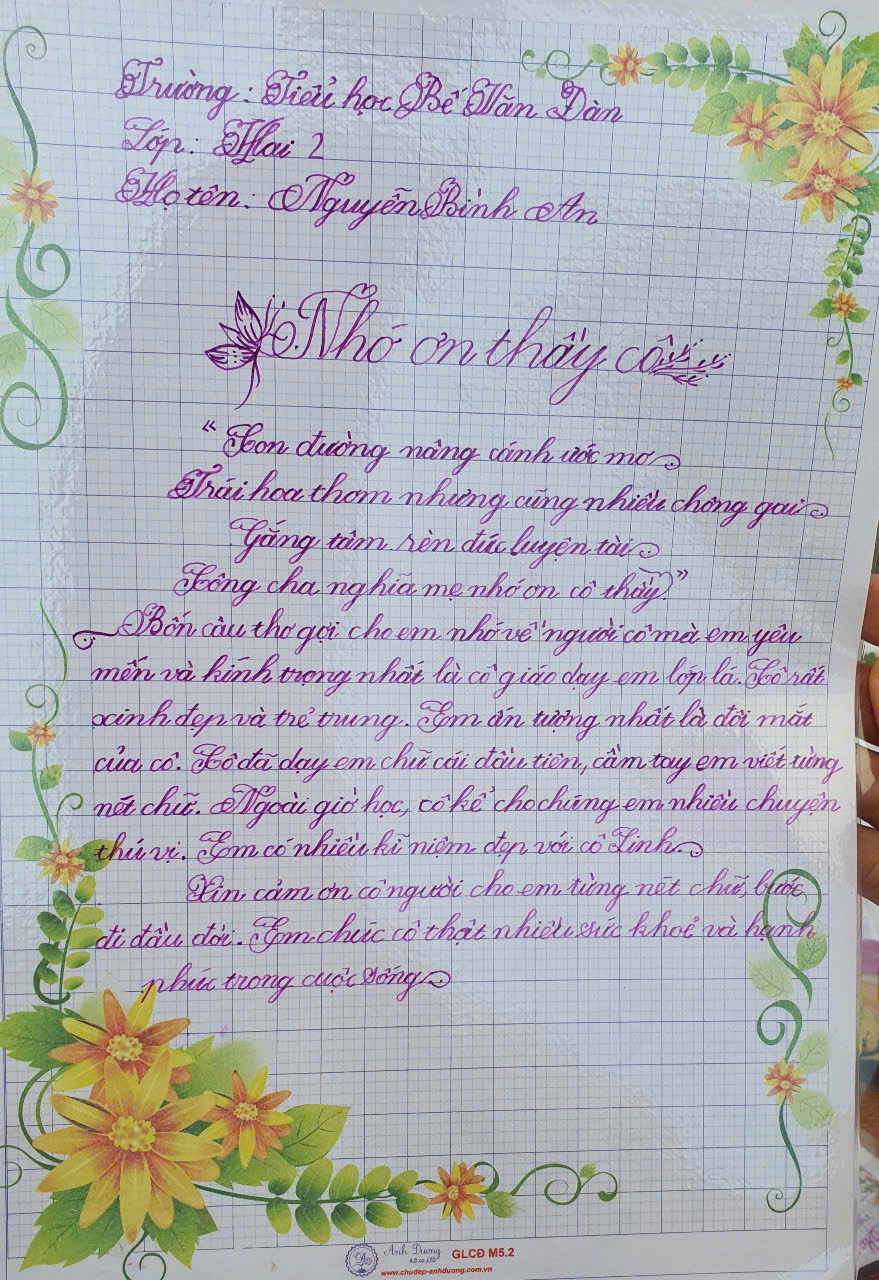 Trường: Tiểu học Bế Văn Đàn
Lớp: Hai 2
Họ tên: Nguyễn Bình An
Nhớ ơn thầy cô
"Con đường nâng cánh ước mơ
Trải hoa thơm nhưng cũng nhiều chông gai
Gắng tâm rèn đức luyện tài
Công cha nghĩa mẹ nhớ ơn cô thầy."
Bốn câu thơ gợi cho em nhớ về người cô mà em yêu
mến và kính trọng nhất là cô giáo dạy em lớp lá. Cô rất
xinh đẹp và trẻ trung. Em ấn tượng nhất là đôi mắt
của cô. Cô đã dạy em chữ cái đầu tiên, cầm tay em viết từng
nét chữ. Ngoài giờ học, cô kể cho chúng em nhiều chuyện
thú vị. Em có nhiều kỉ niệm đẹp với cô Linh.
Xin cảm ơn cô người cho em từng nét chữ, bước
đi đầu đời. Em chúc cô thật nhiều sức khoẻ và hạnh
phúc trong cuộc sống
Ánh Dương
A.D co.,LTD
GLCĐ M5.2
www.chudep-anhduong.com.vn